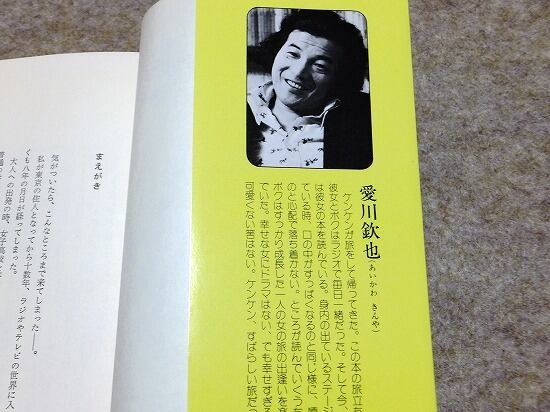 愛川欽也(あいかわ きんや)
ケンケンが旅をして帰ってきた。この本の旅立ち
彼女とボクはラジオで毎日一緒だった。そして今、
は彼女の本を読んでいる。身内の出ているステージ
ている時、口の中がすっぱくなるのと同じ様に、
のと心配で落ち着かない。ところが読んでいくうち
ボクはすっかり成長した一人の女の旅の出逢いを
ていた。幸せな女にドラマはない、でも幸せすぎる
可愛くない筈はない。ケンケン、すばらしい旅だっ
まえがき
気がついたら、こんなところまで来てしまった——。
私が東京の住人となってから十数年、ラジオやテレビの世界に入
くも八年の月日が経ってしまった。
大人への出発の時、女子高校と